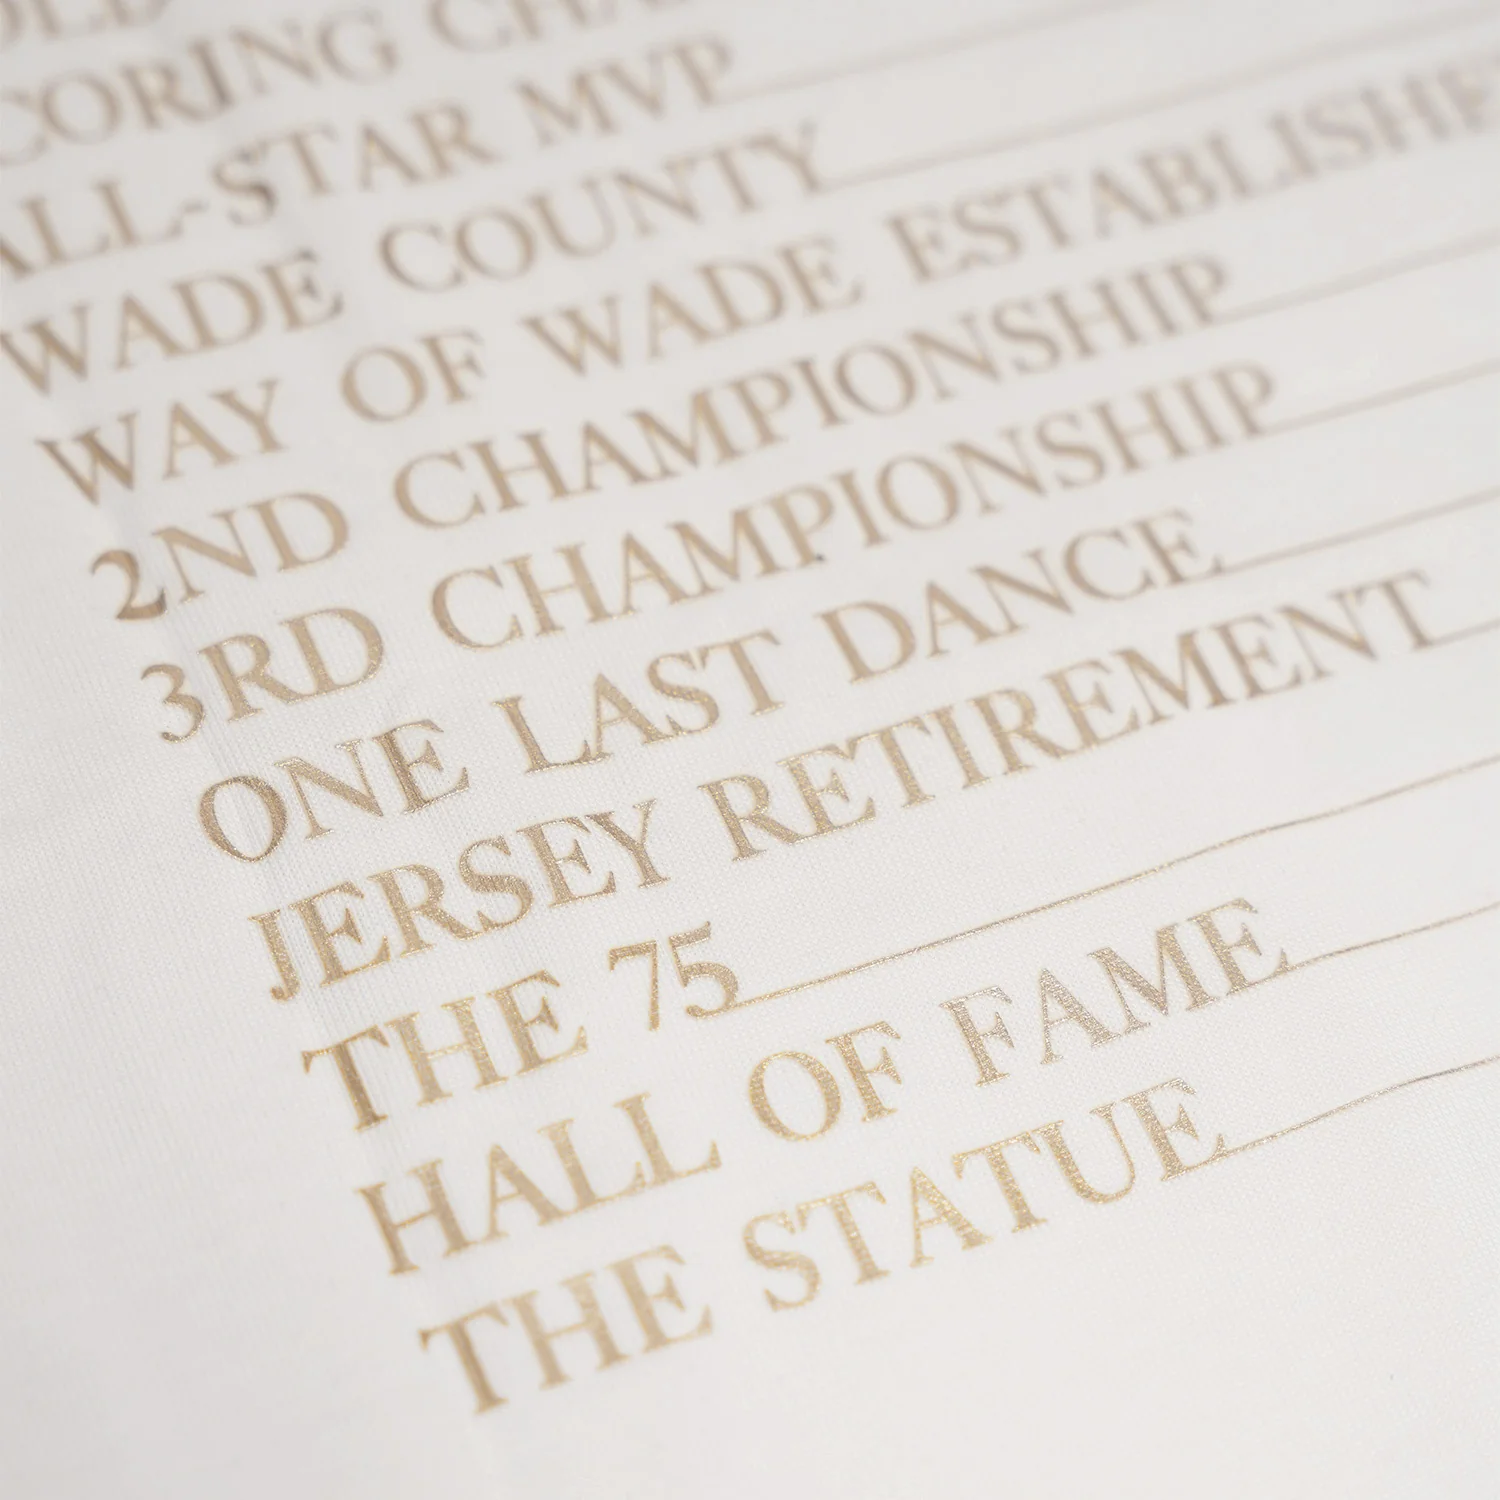 OLD
CORING CHA
ALL-STAR MVP
WADE COUNTY
WAY OF WADE ESTABLISHE
2ND CHAMPIONSHIP
3RD CHAMPIONSHIP
ONE LAST DANCE
JERSEY RETIREMENT
THE 75
HALL OF FAME
THE STATUE